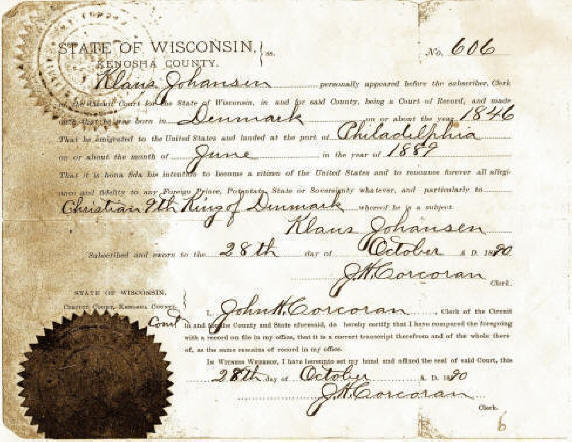 STATE OF WISCONSIN, } ss.
KENOSHA COUNTY.
No. 606
Klaus Johansen personally appeared before the subscriber, Clerk
of the Circuit Court for the State of Wisconsin, in and for said County, being a Court of Record, and made
oath that he was born in Denmark on or about the year 1846
That he emigrated to the United States and landed at the port of Philadelphia
on or about the month of June in the year of 1889
That it is bona fida his intention to become a citizen of the United States and to renounce forever all allegi-
ance and fidelity to any Foreign Prince, Potentate, State or Sovereignty whatever, and particularly to
Christian 9th King of Denmark whereof he is a subject.
Klaus Johansen
Subscribed and sworn to the 28th day of October A. D. 1890
J.H. Corcoran
Clerk.
STATE OF WISCONSIN.
CIRCUIT COURT, KENOSHA COUNTY. }
I, John H. Corcoran, Clerk of the Circuit
Court in and for the County and State aforesaid, do hereby certify that I have compared the foregoing
with a record on file in my office, that it is a correct transcript therefrom and of the whole there
of, as the same remains of record in my office.
IN WITNESS WHEREOF, I have hereunto set my hand and affixed the seal of said Court, this
28th day of October A. D. 1890
J.H. Corcoran
Clerk.
6